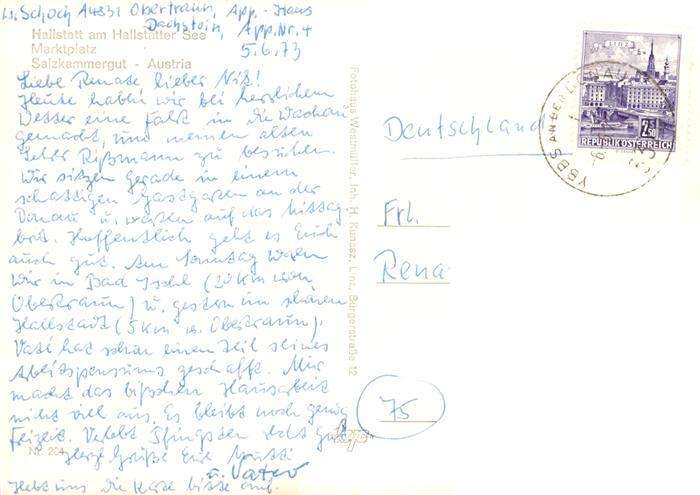 W. Schoch A4831 Obertraun, App.-Haus
Dachstein, App.Nr. 4
Hallstatt am Hallstätter See
Marktplatz
Salzkammergut - Austria
5.6.73
Liebe Renate, lieber Nix!
Heute haben wir bei herrlichem
Wetter eine Fahrt in die Wachau
gemacht, um meinen alten
Lehrer Rißmann zu besuchen.
Wir sitzen gerade in einem
schattigen Gastgarten an der
Donau u. warten auf das Mittag-
brot. Hoffentlich geht es Euch
auch gut. Am Sonntag waren
wir in Bad Ischl (20 km von
Obertraun) u. gestern im schönen
Hallstatt (5 km v. Obertraun).
Vati hat schon einen Teil seines
Arbeitspensums geschafft. Mir
macht das bißchen Hausarbeit
nicht viel aus. Es bleibt noch genug
Freizeit. Verlebt Pfingsten recht gut
Herzl. Grüße Eure Mutti
u. Vater
Hebt uns die Karte bitte auf.
Nr. 204
Fotohaus Westmüller, Inh. H. Kunasz, Linz, Bürgerstraße 12
LINZ
7.50
REPUBLIK ÖSTERREICH
YBBS AN DER DONAU
Deutschland
Frl.
Rena
75